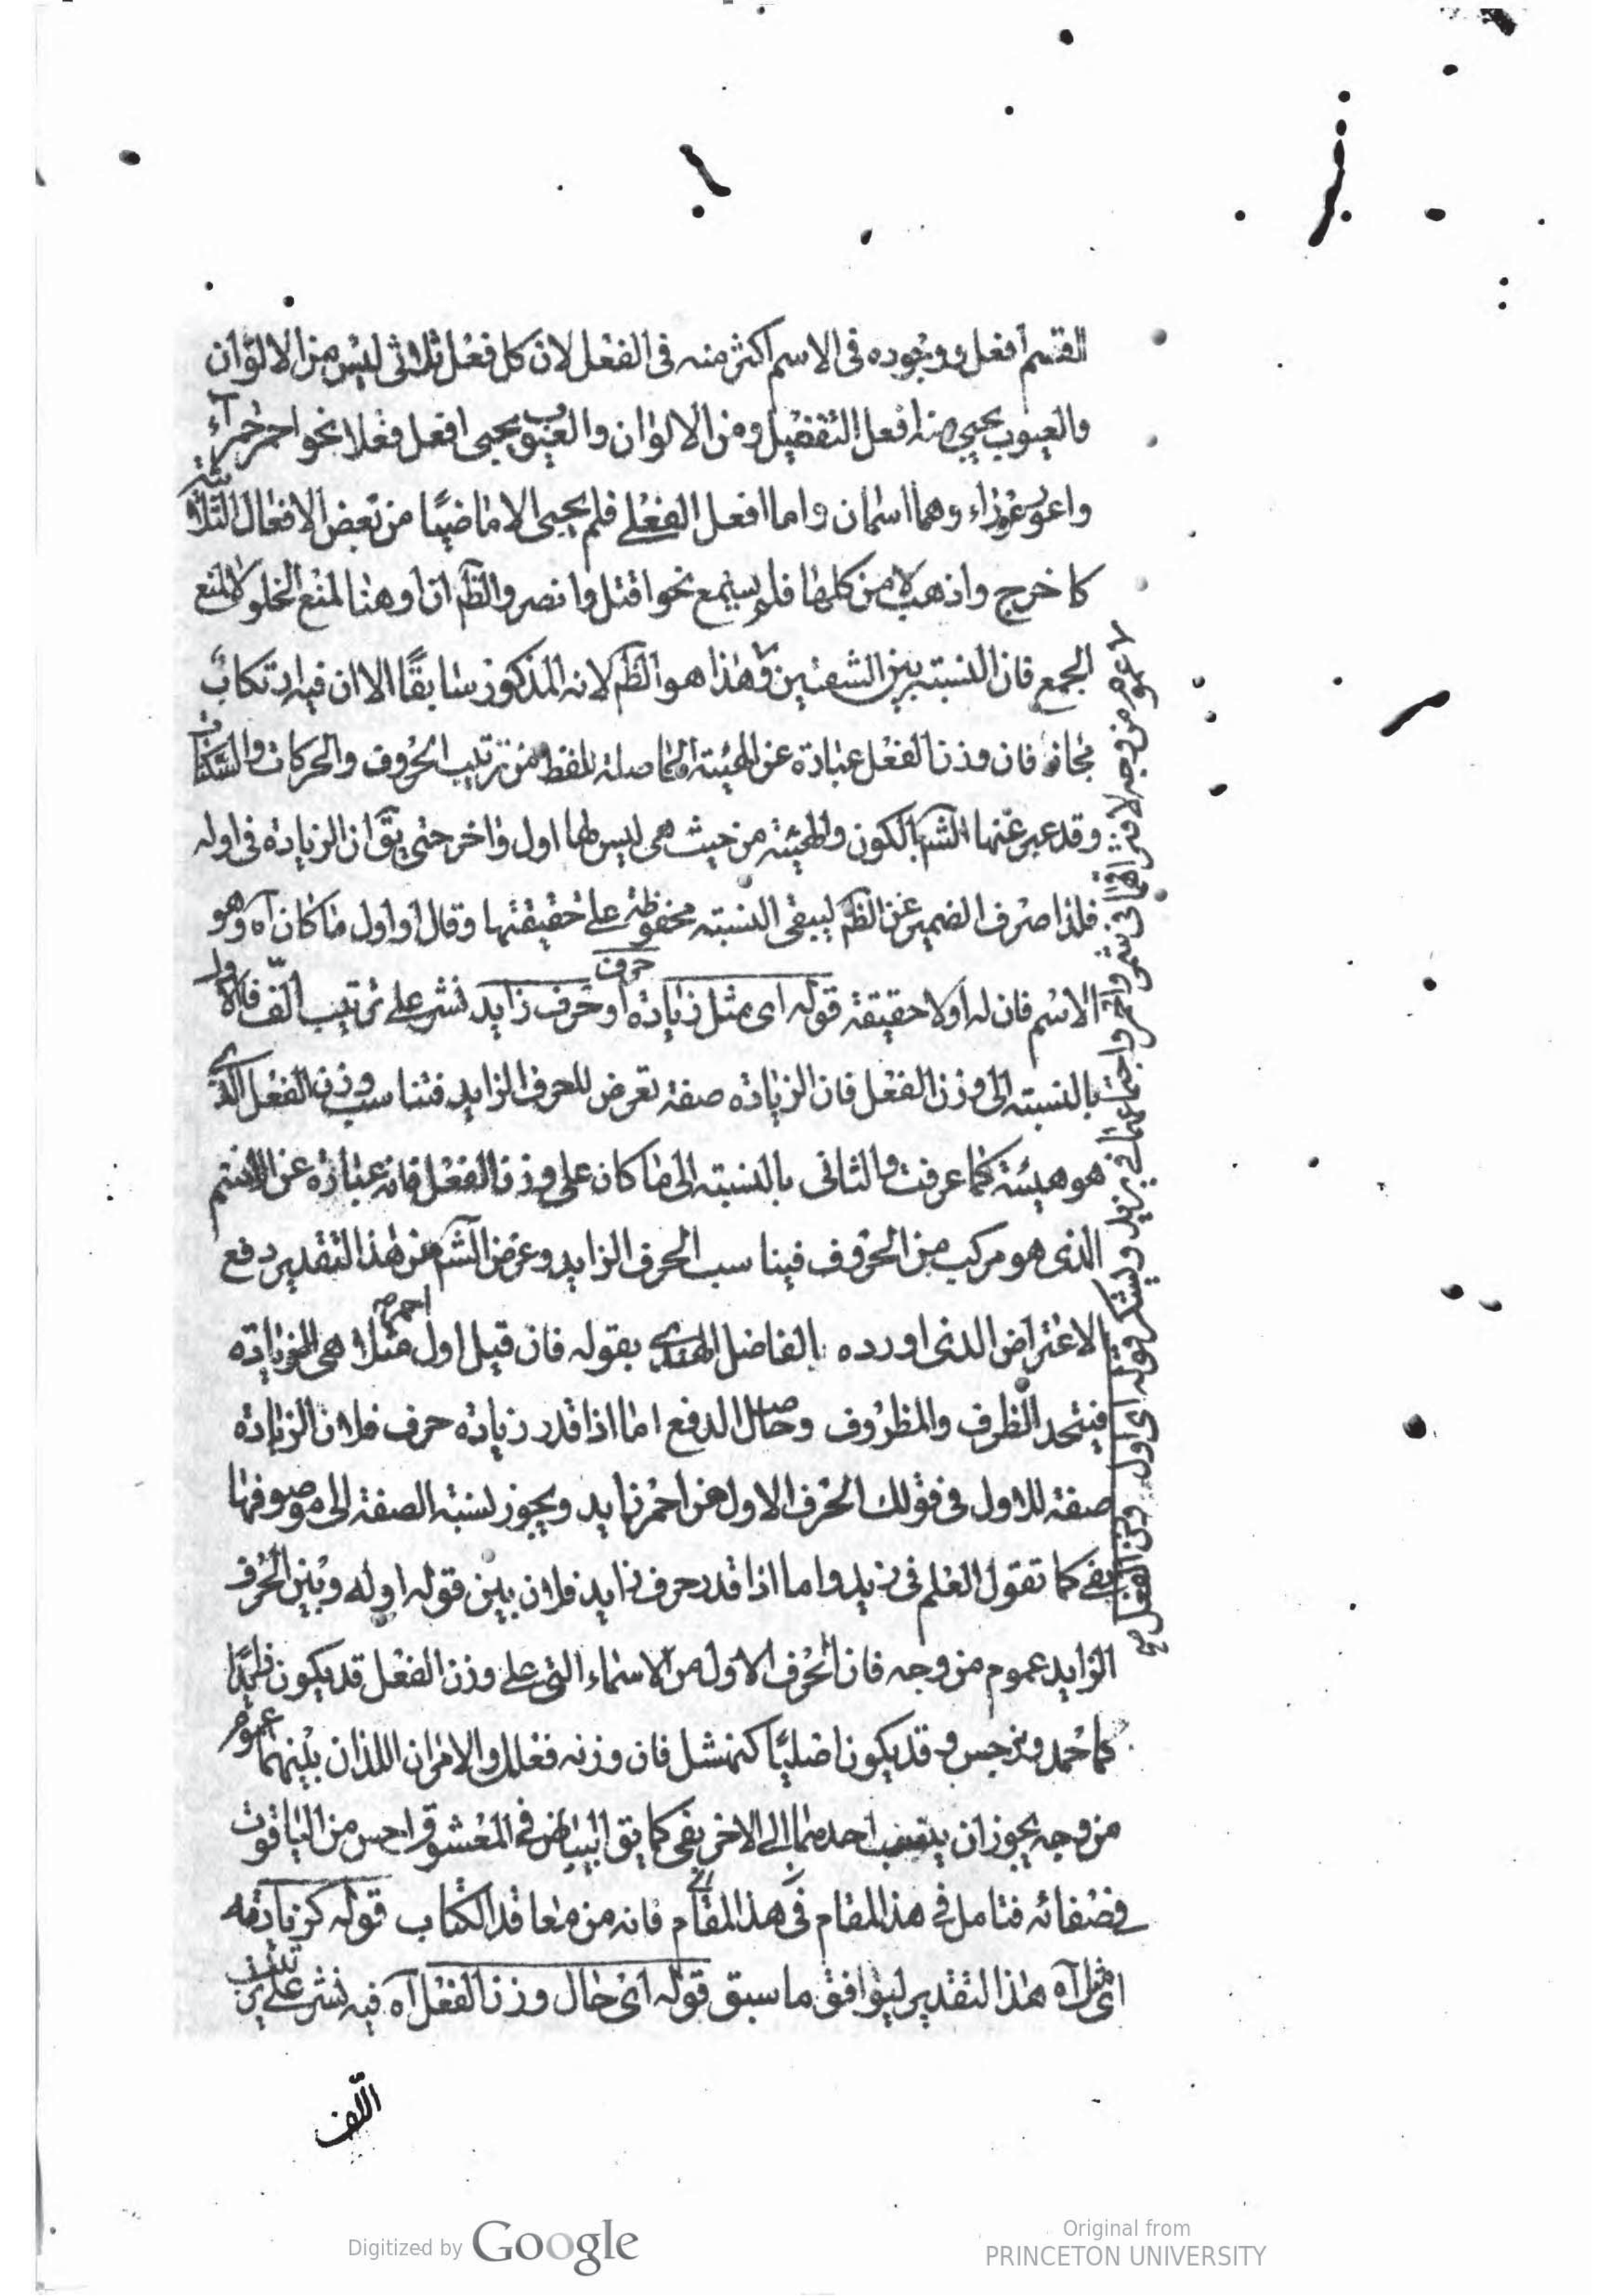 القسم افعل ووجوده فى الاسم اكثر منه فى الفعل لان كل فعل ثلاثى ليس من الالوان
والعيوب يجيى منه افعل التفضيل ومن الالوان والعيوب يجيى افعل فعلا نحو احمر حمراء
واعور عوراء وهما اسمان واما افعل الفعلى فلم يجيى الا ماضيا من بعض الافعال الثلاثية
كاخرج واذهب لا من كلها فلم يسمع نحو اقتل وانصر والظم ان او هنا لمنع الخلو لا لمنع
الجمع فان النسبته بين الشيئين وهذا هو الظم لانه المذكور سابقًا الا ان فيه ارتكاب
مجاز فان وزن الفعل عبارة عن الهيئته الحاصلة للفظ من ترتيب الحروف والحركات والسكنات
وقد عبر عنها الشم بالكون والهيئته من حيث هى ليس لها اول واخر حتى يق ان الزيادة فى اوله
فلذا صرف الضمير عن الظم ليبقى النسبته محفوظة على حقيقتها وقال او اول ما كان آه وهو
الاسم فان له اولا حقيقة قوله اى مثل زيادة او حرف زايد نشر على ترتيب اللف فالاول
حرف
بالنسبته الى وزن الفعل فان الزيادة صفة تعرض للحرف الزايد فتناسب وزن الفعل الذى
هو هيئة كما عرفت والثانى بالنسبته الى ما كان على وزن الفعل فانه عبارة عن الاسم
الذى هو مركب من الحروف فيناسب الحرف الزايد وغرض الشم من هذا التقدير دفع
الاعتراض الذى اورده الفاضل الهندى بقوله فان قيل اول احمر مثلا هى الزيادة
فيتحد الظرف والمظروف وحاصل الدفع اما اذا قدر زيادة حرف فلان الزيادة
صفة للاول فى قولك الحرف الاول من احمر زايد ويجوز نسبته الصفة الى موصوفها
بفى كما تقول العلم فى زيد واما اذا قدر حرف زايد فلان بين قوله اوله وبين الحرف
الزايد عموم من وجه فان الحرف الاول من الاسماء التى على وزن الفعل قد يكون زايدًا
كاحمد ونرجس وقد يكون اصليًا كنهشل فان وزنه فعلل والامران اللذان بينهما عموم
من وجه يجوز ان ينسب احدهما الى الاخر بفى كما يق البياض فى المعشوق احسن من الياقوت
فى صفائه فتامل فى هذا المقام فى هذا المقام فانه من معاقد الكتاب قوله كزيادته
اى مثل آه هذا التقدير ليوافق ما سبق قوله اى حال وزن الفعل آه فيه نشر على ترتيب
اللف
عموم من وجه لافتراقهما فى واجتماعهما فى يزيد ويشكر قوله اى اول وزن الفعل صح
Digitized by Google
Original from
PRINCETON UNIVERSITY